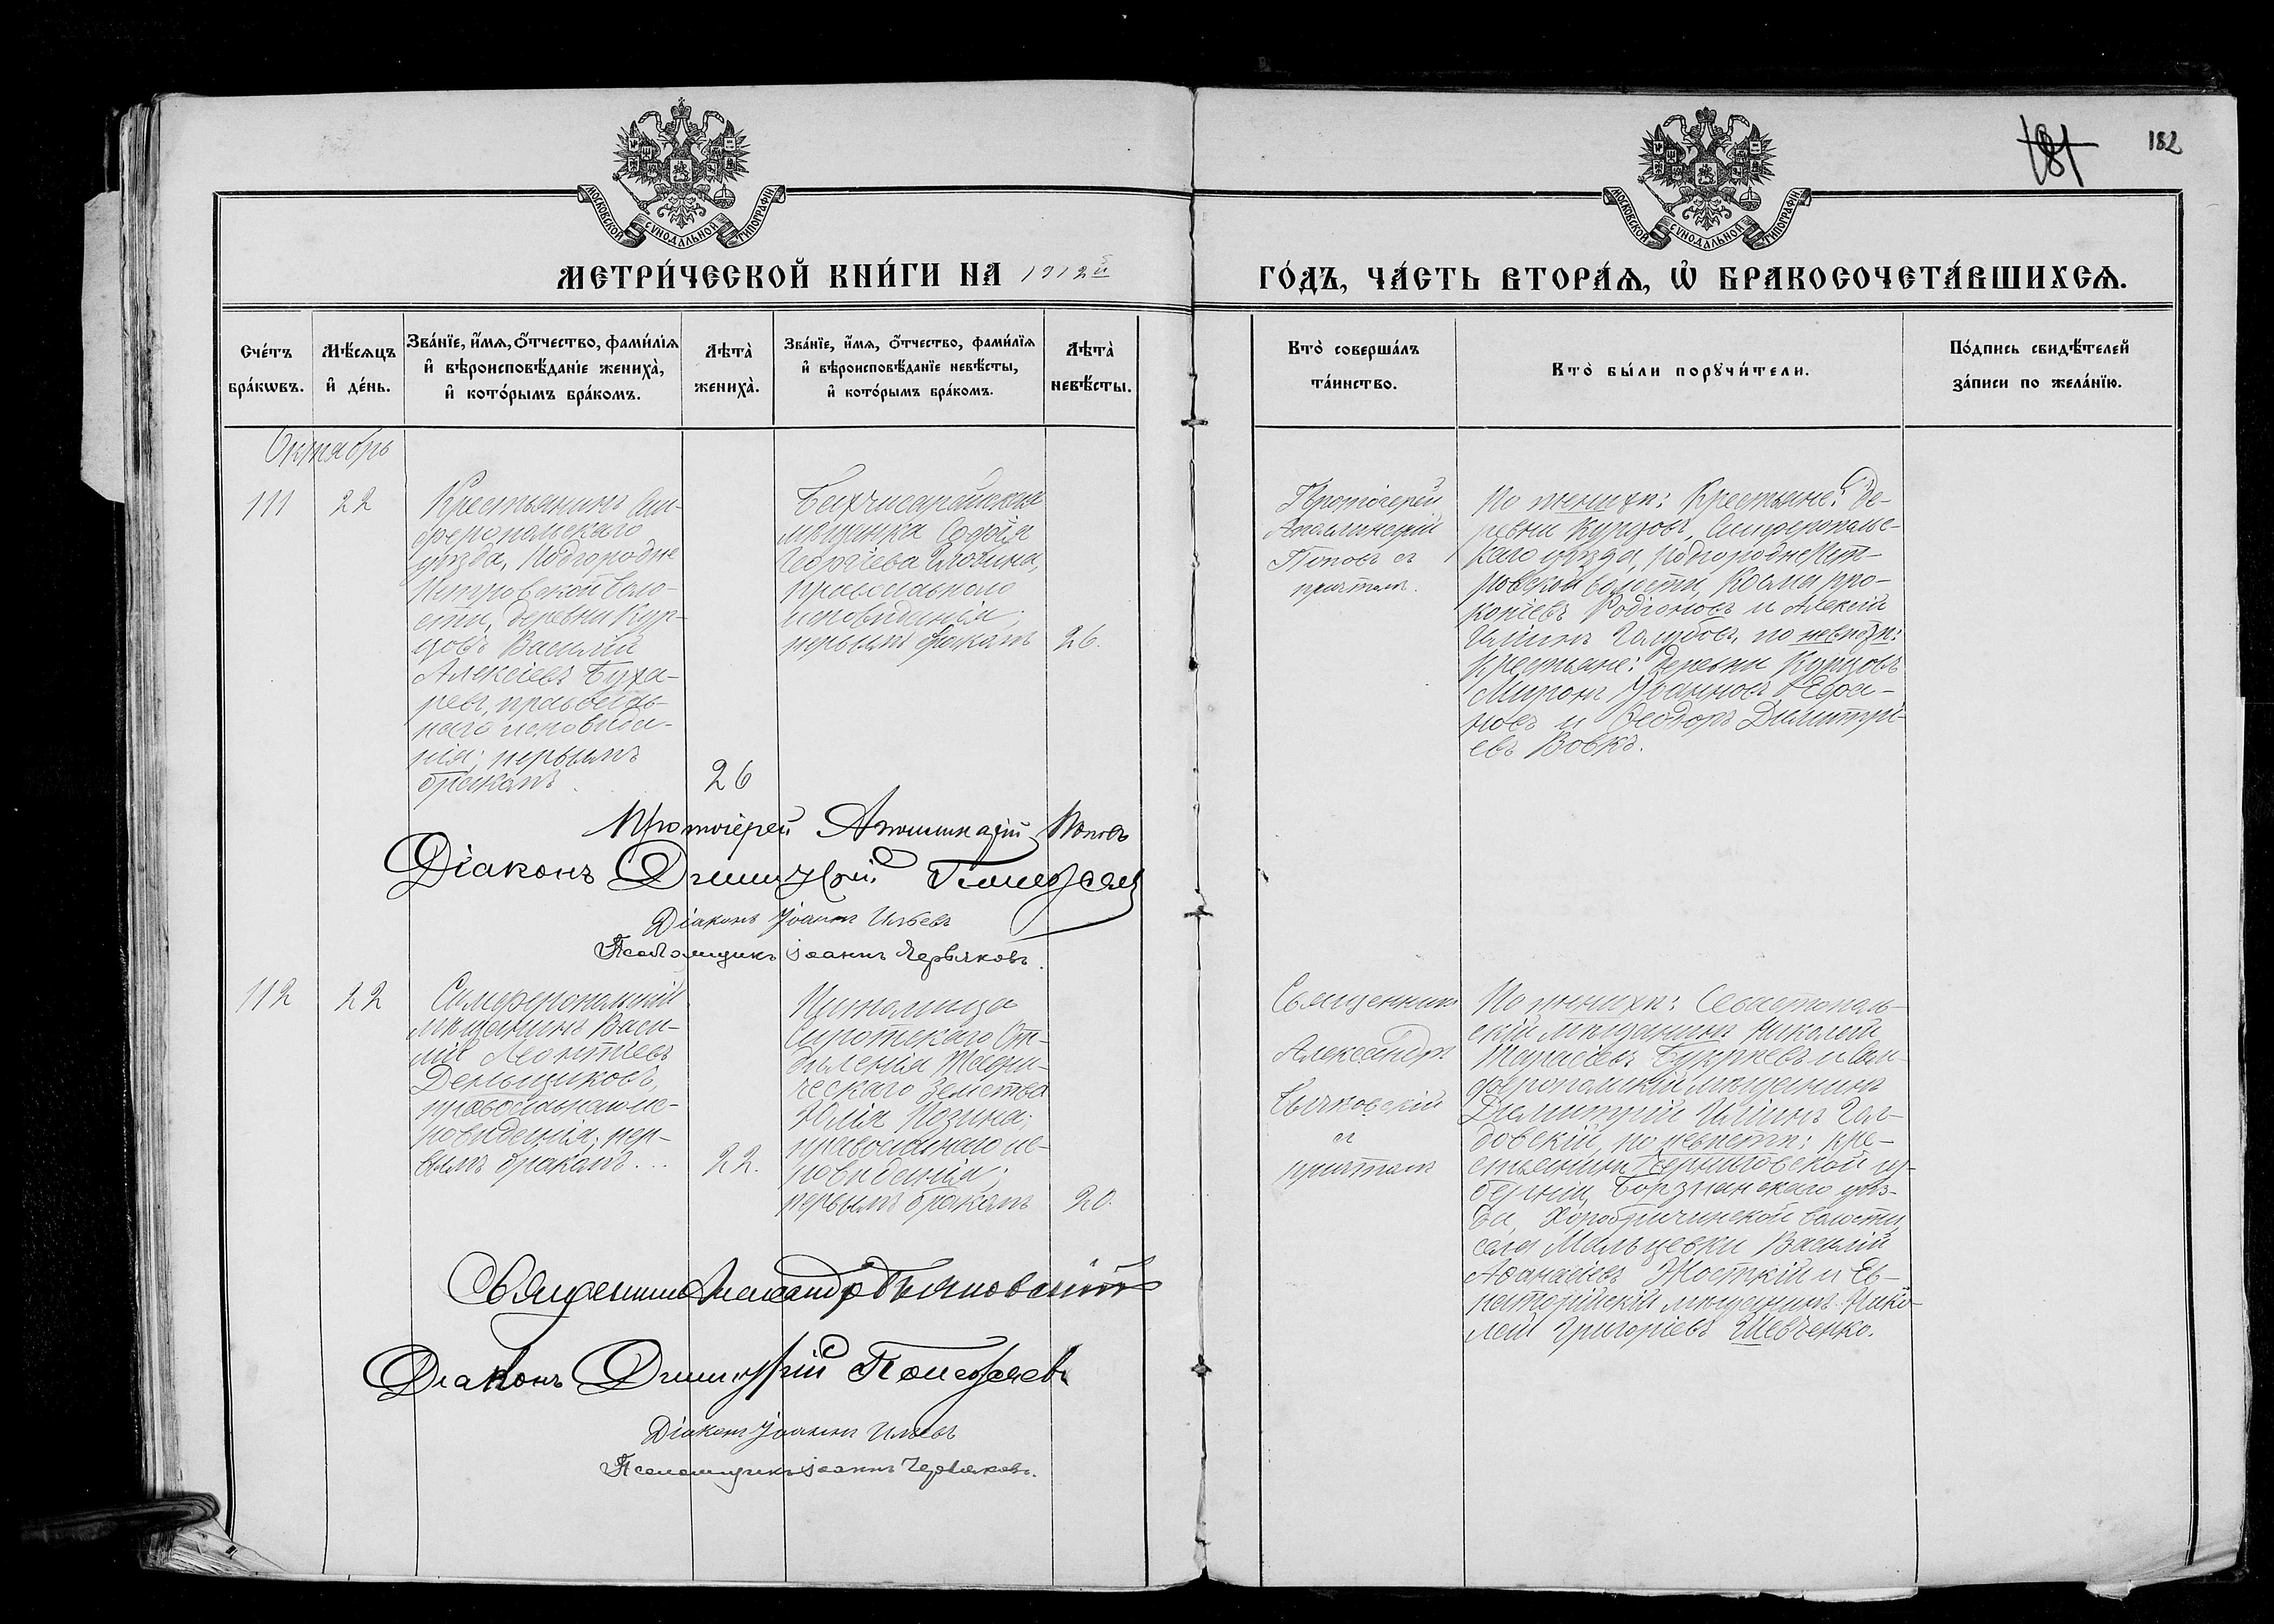 181
182
МОСКОВСКОЙ СѴНОДАЛЬНОЙ ТИПОГРАФІИ
МОСКОВСКОЙ СѴНОДАЛЬНОЙ ТИПОГРАФІИ
МЕТРИ́ЧЕСКОЙ КНИ́ГИ НА 1912й
ГО́ДЪ, ЧА́СТЬ ВТОРА́Ѧ, Ѡ҆ БРАКОСОЧЕТА́ВШИХСѦ.
Сче́тъ
бра́кѡвъ.
Мѣ́сѧцъ
и҆ де́нь.
Зва́нїе, и҆́мѧ, ѻ҆́тчество, фами́лїѧ
и҆ вѣроисповѣ́данїе жениха̀,
и҆ кото́рымъ бра́комъ.
Лѣта̀
жениха̀.
Зва́нїе, и҆́мѧ, ѻ҆́тчество, фами́лїѧ
и҆ вѣроисповѣ́данїе невѣ́сты,
и҆ кото́рымъ бра́комъ.
Лѣта̀
невѣ́сты.
Кто̀ соверша́лъ
та́инство.
Кто̀ бы́ли порꙋчи́тели.
По́дпись свидѣ́телей
за́писи по жела́нїю.
Октябрь
111
22
Крестьянинъ Сим-
феропольскаго
уѣзда, Подгородне
Петровской Воло-
сти, деревни Кур-
цовъ Василій
Алексіевъ Буха-
ревъ, православ-
наго исповѣда-
нія; первымъ
бракомъ
26
Бахчисарайская
мѣщанка Софія
Георгіева
православнаго
исповѣданія;
первымъ бракомъ
26.
Протоіерей
Аполлинарій
Поповъ съ
причтомъ.
По женихѣ: Крестьяне: де-
ревни Курцовъ, Симферополь-
скаго уѣзда, Подгородне Пет-
ровской волости, Косма Про-
копіевъ Родіоновъ и Алексій
Иліинъ Голубовъ, по невѣстѣ:
Крестьяне: деревни Курцовъ
Миронъ Іоанновъ
и Ѳеодоръ Димитрі-
евъ Вовкъ.
Протоіерей Аполлинарій Поповъ
Діаконъ Димитрій
Діаконъ Іоаннъ Ильевъ
Псаломщикъ Іоаннъ Червяковъ.
112
22
Симферопольскій
мѣщанинъ Васи-
лій Леонтіевъ
Деньщиковъ,
православнаго ис-
повѣданія; пер-
вымъ бракомъ...
22.
Питомица
Сиротскаго От-
дѣленія Таври-
ческаго Земства
Юлія Позина;
православнаго ис-
повѣданія;
первымъ бракомъ
20.
Священникъ
Александръ
Бычковскій
съ
причтомъ
По женихѣ: Севастополь-
скій мѣщанинъ Николай
Тарасіевъ Букреевъ и Сим-
феропольскій мѣщанинъ
Димитрій Иліинъ Гал-
довскій, по невѣстѣ: кре-
стьянинъ Черниговской гу-
берніи, Борзнанскаго уѣз-
да, волости,
села Мальцевки Василій
Аѳанасіевъ Жосткій и Ев-
паторійскій мѣщанинъ Нико-
лай Григоріевъ Шевченко.
Священникъ Александръ Бычковскій
Діаконъ Димитрій
Діаконъ Іоаннъ Ильевъ
Псаломщикъ Іоаннъ Червяковъ.